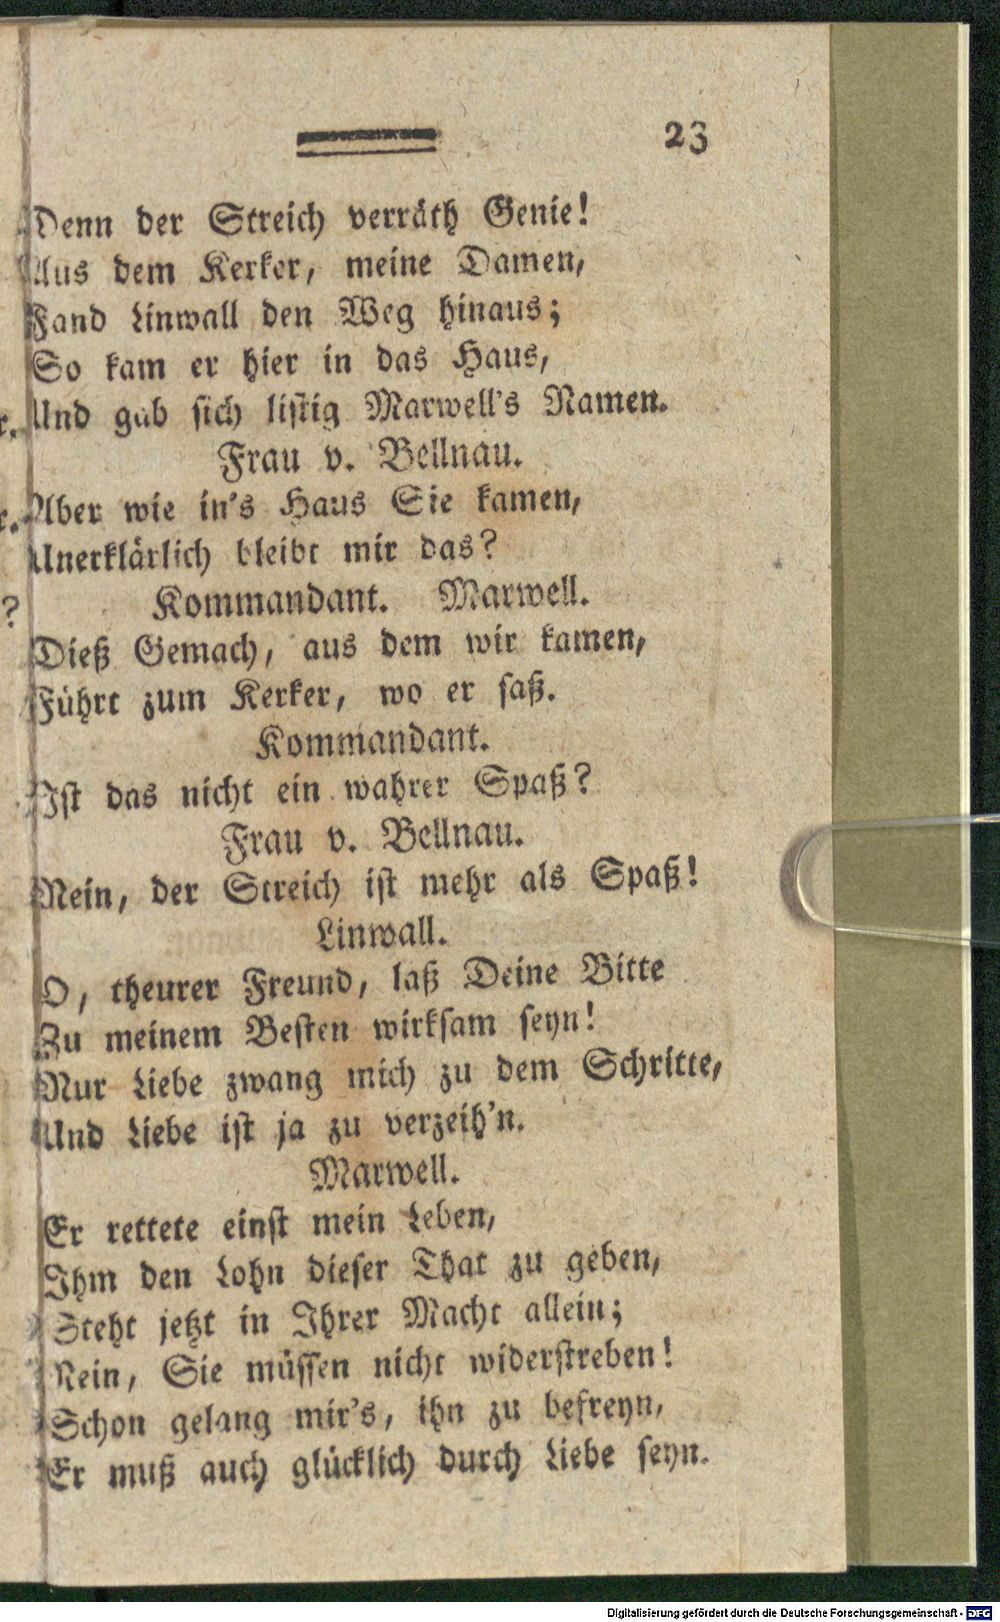 23
Denn der Streich verräth Genie!
Aus dem Kerker, meine Damen,
Fand Linwall den Weg hinaus;
So kam er hier in das Haus,
Und gab sich listig Marwell's Namen.
Frau v. Bellnau.
Aber wie in's Haus Sie kamen,
Unerklärlich bleibt mir das?
Kommandant. Marwell.
Dieß Gemach, aus dem wir kamen,
Führt zum Kerker, wo er saß.
Kommandant.
Ist das nicht ein wahrer Spaß?
Frau v. Bellnau.
Nein, der Streich ist mehr als Spaß!
Linwall.
O, theurer Freund, laß Deine Bitte
Zu meinem Besten wirksam seyn!
Nur Liebe zwang mich zu dem Schritte,
Und Liebe ist ja zu verzeih'n.
Marwell.
Er rettete einst mein Leben,
Ihm den Lohn dieser That zu geben,
Steht jetzt in Ihrer Macht allein;
Nein, Sie müssen nicht widerstreben!
Schon gelang mir's, ihn zu befreyn,
Er muß auch glücklich durch Liebe seyn.
Digitalisierung gefördert durch die Deutsche Forschungsgemeinschaft - DFG